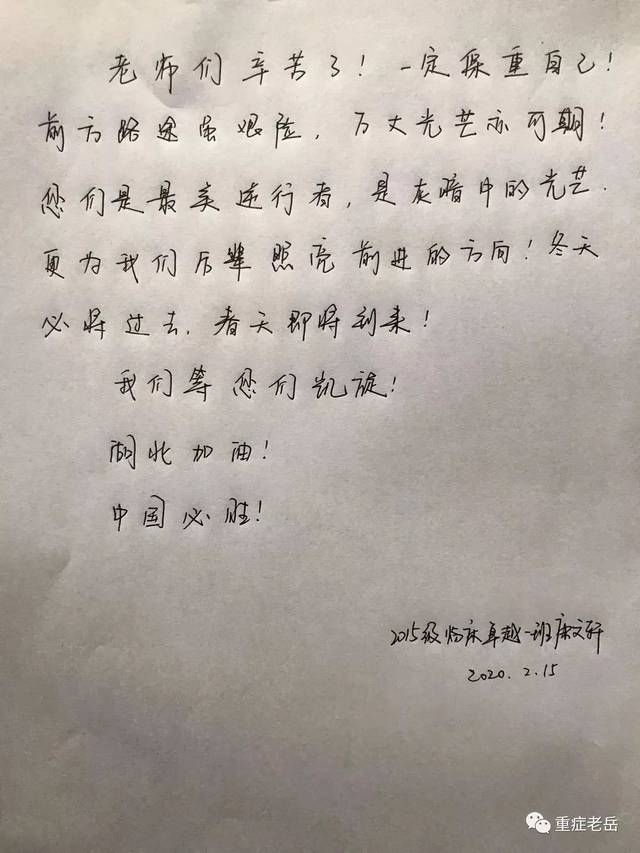 老师们辛苦了！一定保重自己！
前方路途虽艰险，万丈光芒亦可期！
您们是最美逆行者，是灰暗中的光芒.
更为我们后辈照亮前进的方向！冬天
必将过去.春天即将到来！
我们等您们凯旋！
湖北加油！
中国必胜！
2015级临床卓越一班康文轩
2020.2.15
重症老岳